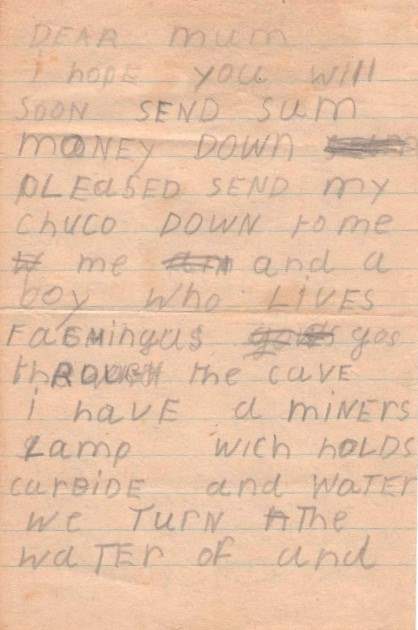 DEAR mum
i hope you will
soon SEND sum
mONEY DOWn
pLEaSED SEND my
chuco DOWN tome
me and a
boy who LiVES
gos
thROUGH the caVE
i haVE a miNERS
Lamp wich hoLDS
carbiDE and WaTER
WE TURN The
waTER of and